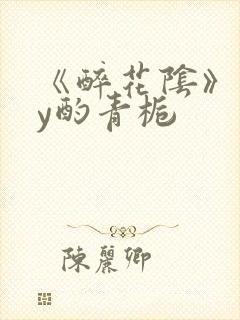 《醉花陰》
y酌青梔
陳麗卿